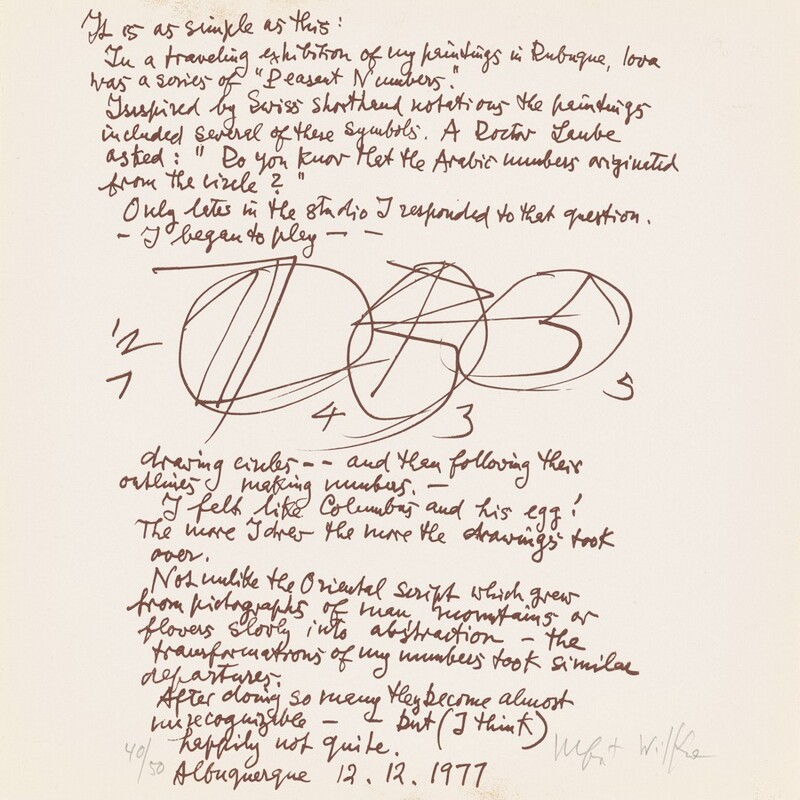 It is as simple as this:
In a traveling exhibition of my paintings in Dubuque, Iowa
was a series of "Peasant Numbers."
Inspired by Swiss shorthand notations the paintings
included several of these symbols. A Doctor Laube
asked: "Do you know that the Arabic numbers originated
from the circle?"
Only later in the studio I responded to that question.
- I began to play - -
2
1
4
3
5
drawing circles -- and then following their
outlines making numbers. -
I felt like Columbus and his egg!
The more I drew the more the drawings took
over.
Not unlike the Oriental script which grew
from pictographs of man mountains or
flowers slowly into abstraction - the
transformations of my numbers took similar
departures.
After doing so many they become almost
unrecognizable - - but (I think)
happily not quite.
40/50
Albuquerque 12.12.1977